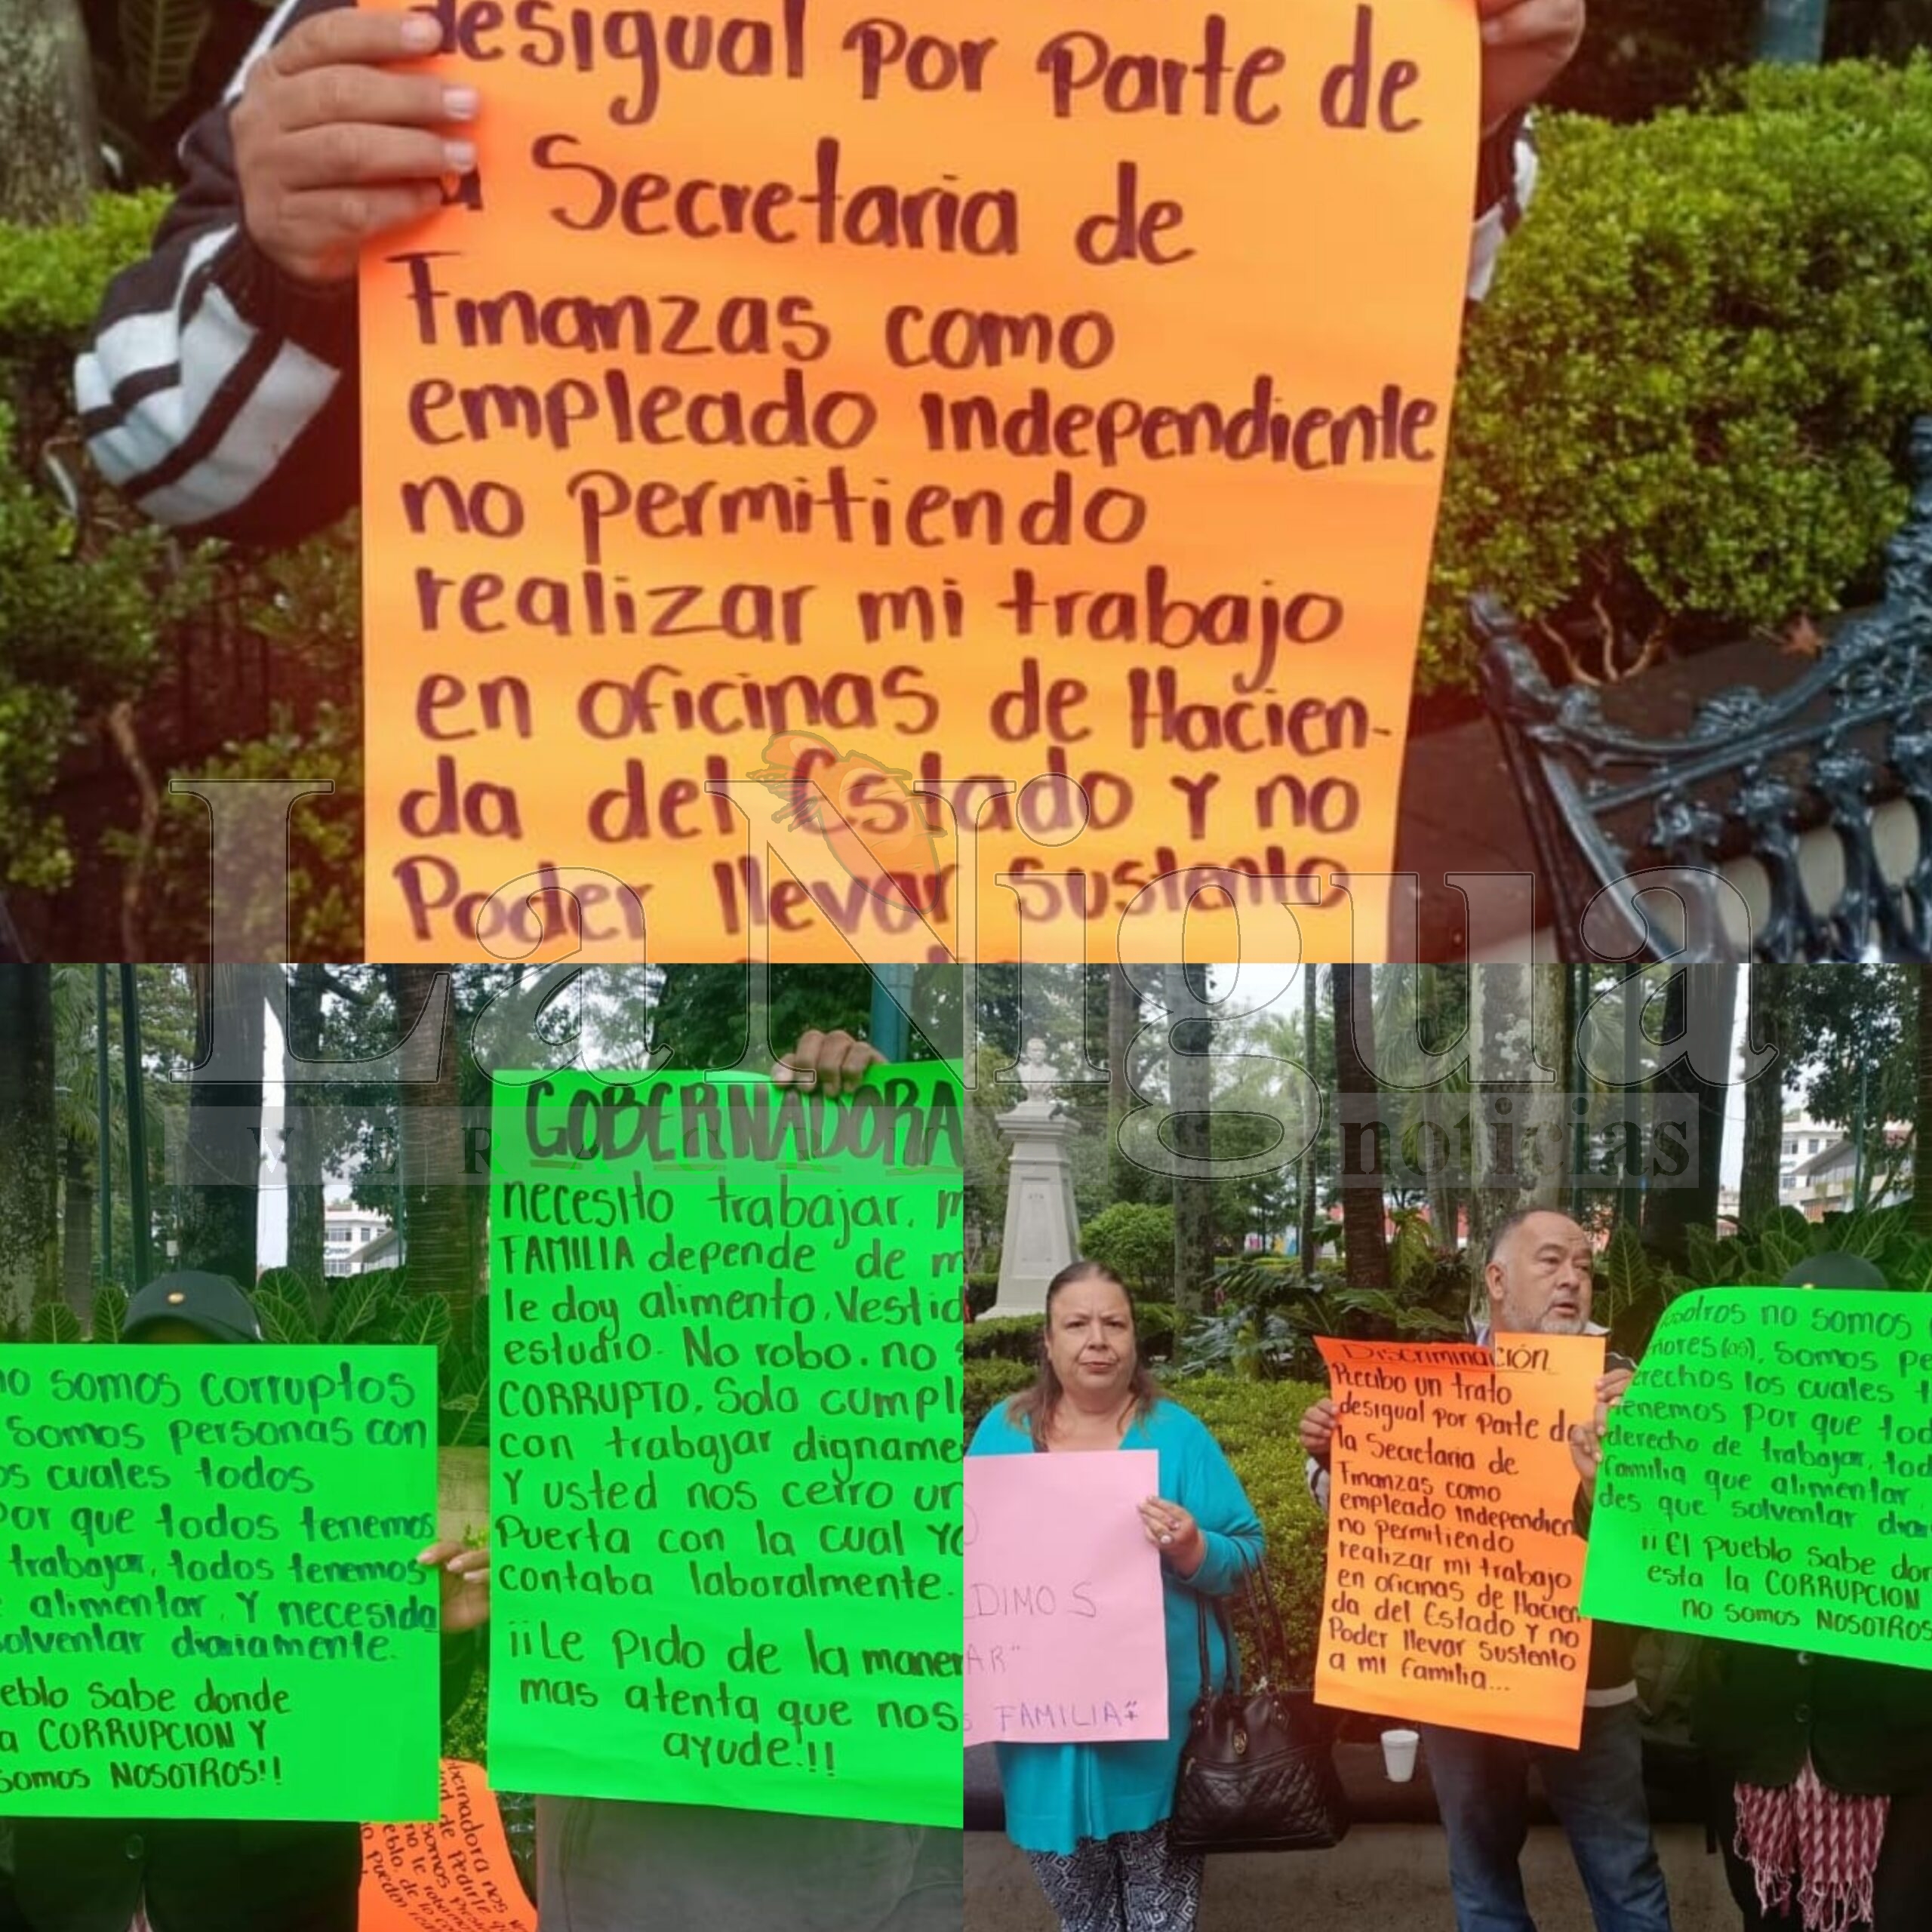 desigual por parte de
Secretaria de
Finanzas como
empleado independiente
no permitiendo
realizar mi trabajo
en oficinas de Hacien-
da del Estado y no
Poder llevar sustento
La Nigua
noticias
GOBERNADORA
necesito trabajar. m
FAMILIA depende de m
le doy alimento. Vestid
estudio. No robo. no
CORRUPTO. Solo cumpl
con trabajar digname
Y usted nos cerro un
Puerta con la cual Yo
contaba laboralmente.
¡¡Le pido de la maner
mas atenta que nos
ayude!!!
no somos corruptos
Somos personas con
os cuales todos
Por que todos tenemos
trabajar, todos tenemos
alimentar. Y necesida
solventar diariamente.
eblo sabe donde
a CORRUPCION Y
somos NOSOTROS!!
bernadora nos
DIMOS
AR"
S FAMILIA"
Discriminación
Recibo un trato
desigual por parte de
la Secretaria de
Finanzas como
empleado independien
no permitiendo
realizar mi trabajo
en oficinas de Hacien
da del Estado y no
Poder llevar sustento
a mi familia...
osotros no somos
tores(as), somos pe
erechos los cuales t
tenemos por que tod
derecho de trabajar, tod
familia que alimentar
des que solventar dia
¡¡El pueblo sabe don
esta la CORRUPCION
no somos NOSOTROS